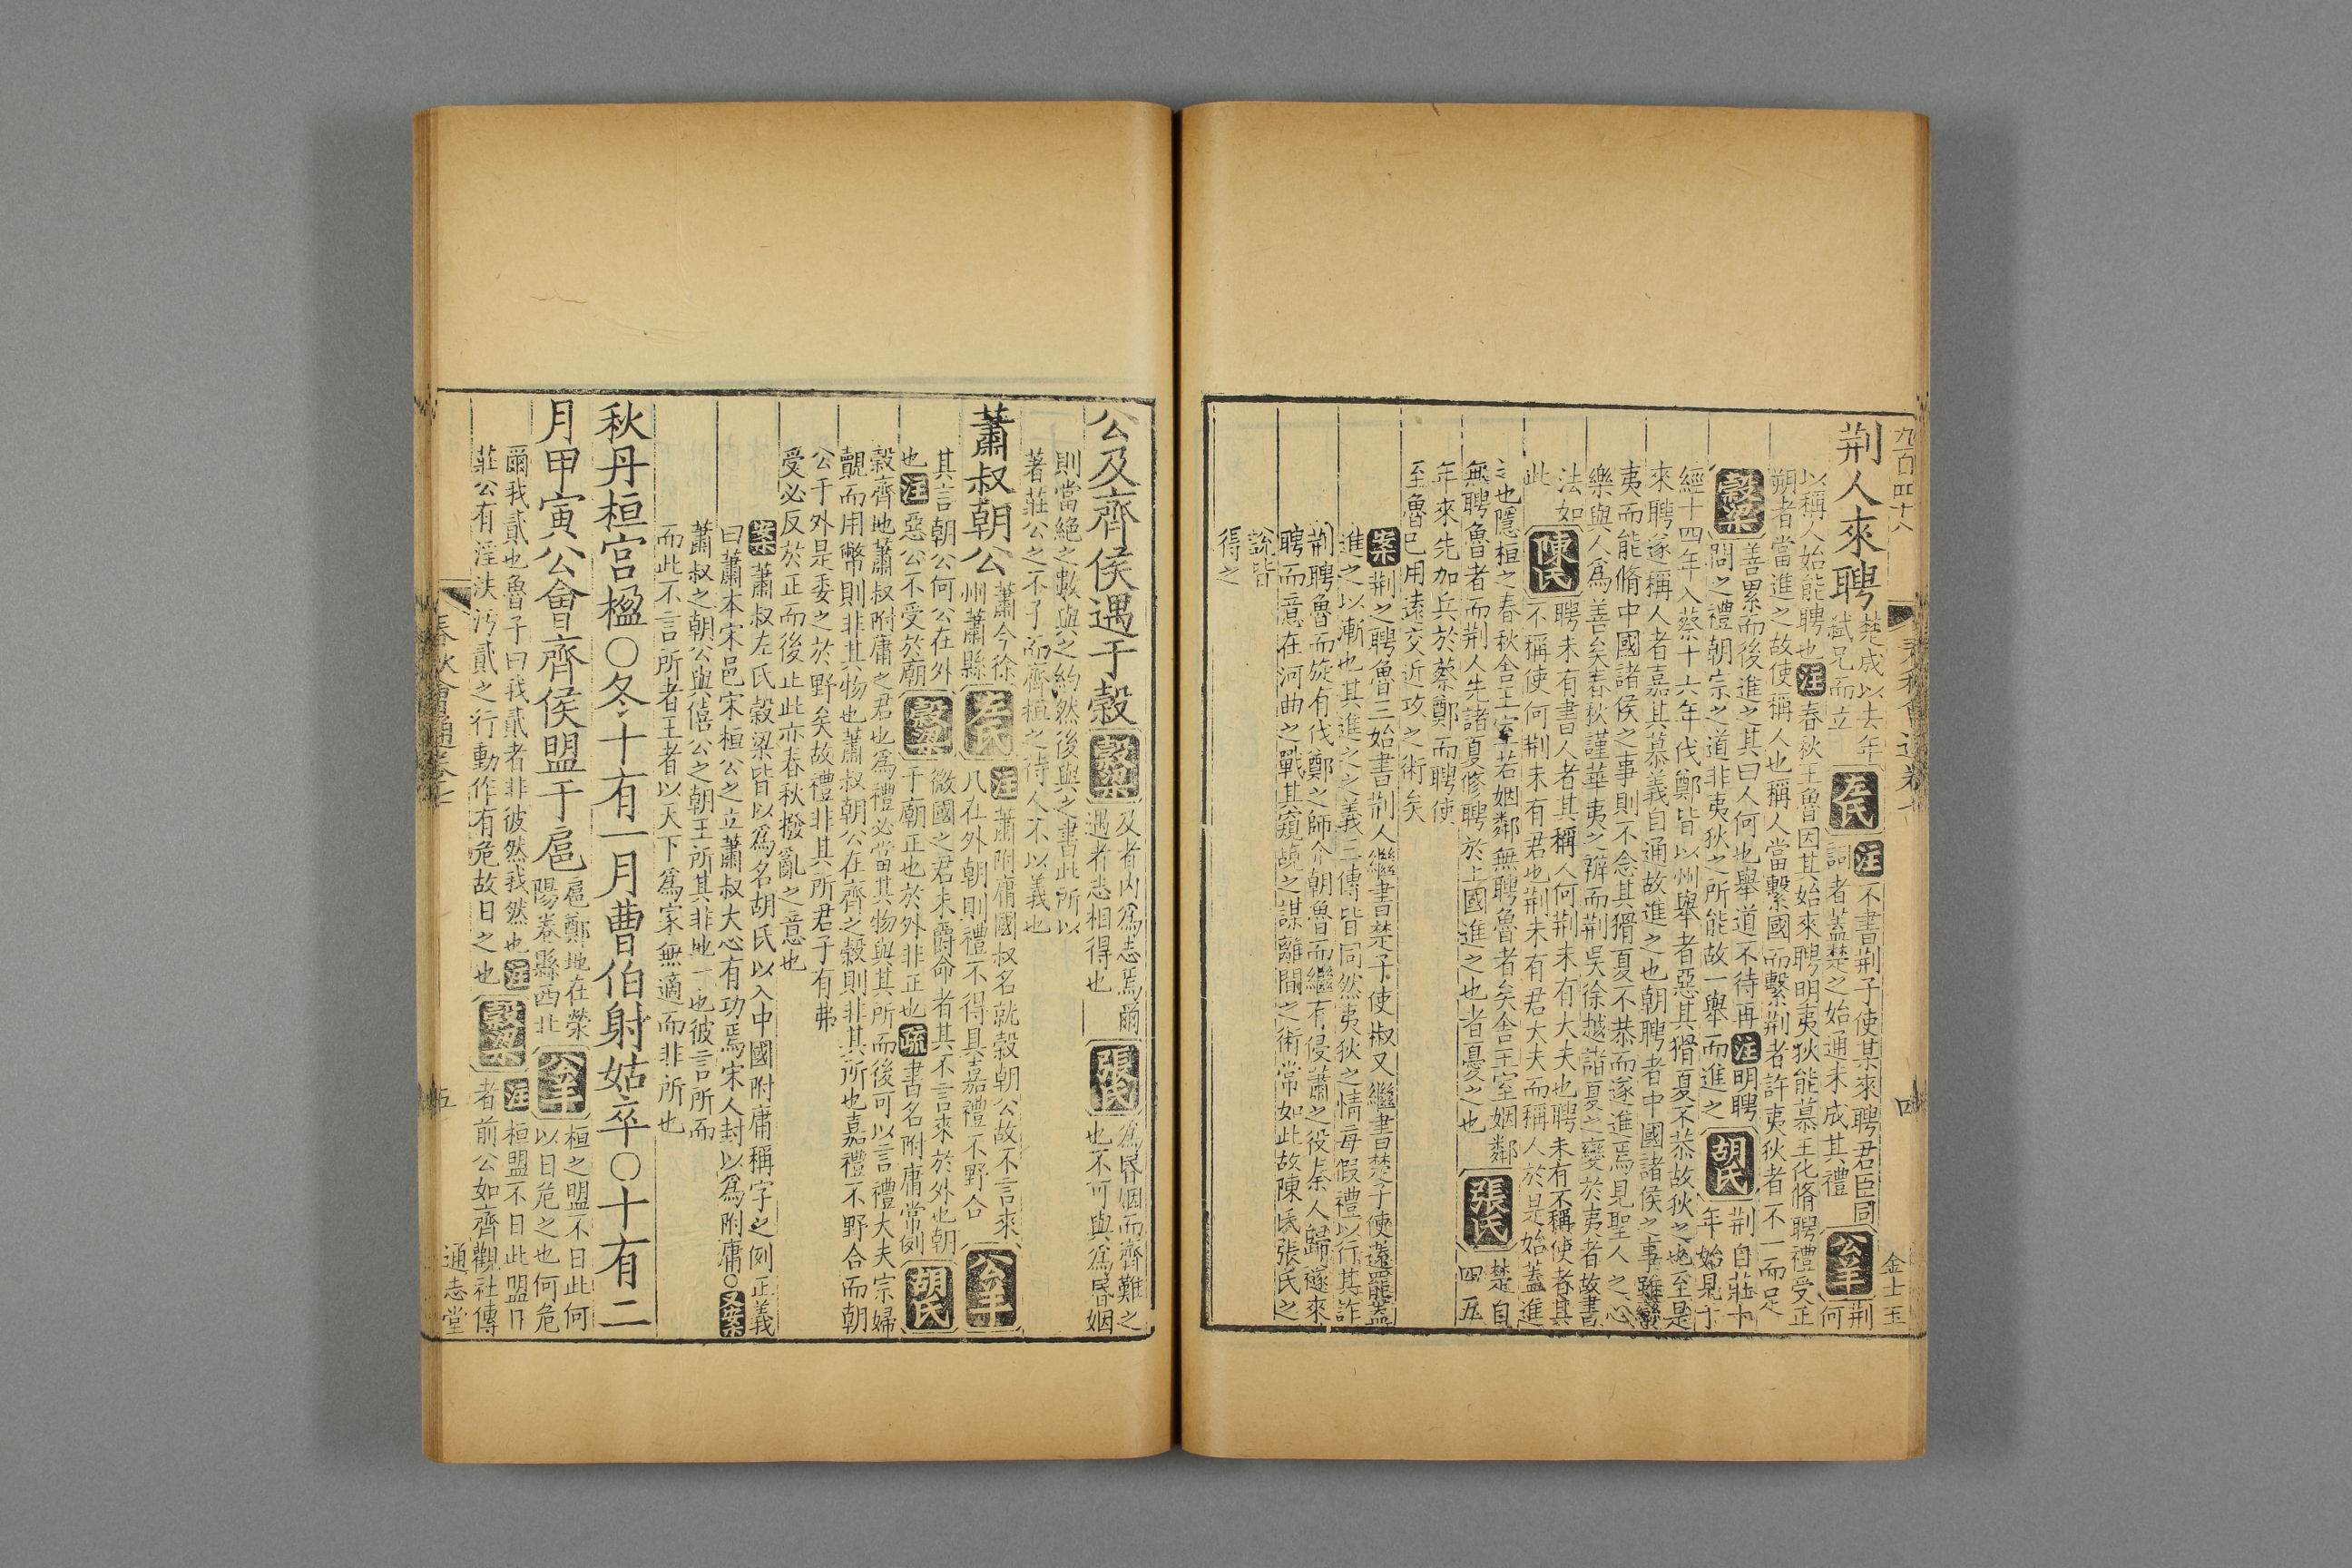 九百四十八
春秋會通卷七
四
金士玉
荆人來聘
楚成以去年
弑兄而立
左氏
注
不書荆子使某來聘君臣同
詞者蓋楚之始通未成其禮
公羊
荆
何
以稱人始能聘也
注
春秋王魯因其始來聘明夷狄能慕王化脩聘禮受正
朔者當進之故使稱人也稱人當繫國而繫荆者許夷狄者不一而足
穀梁
善累而後進之其曰人何也舉道不待再
注
明聘
問之禮朝宗之道非夷狄之所能故一舉而進之
胡氏
荆自莊十
年始見于
經十四年入蔡十六年伐鄭皆以州舉者惡其猾夏不恭故狄之也至是
來聘遂稱人者嘉其慕義自通故進之也朝聘者中國諸侯之事雖蠻
夷而能脩中國諸侯之事則不念其猾夏不恭而遂進焉見聖人之心
樂與人爲善矣春秋謹華夷之辨而荆吳徐越諸夏之變於夷者故書
法如
此
陳氏
聘未有書人者其稱人何荆未有大夫也聘未有不稱使者其
不稱使何荆未有君也荆未有君大夫而稱人於是始蓋進
之也隱桓之春秋舍王室若姻鄰無聘魯者矣舍王室姻鄰
無聘魯者而荆人先諸夏修聘於上國進之也者憂之也
張氏
楚自
四五
年來先加兵於蔡鄭而聘使
至魯已用遠交近攻之術矣
案
荆之聘魯三始書荆人繼書楚子使椒又繼書楚子使薳罷蓋
進之以漸也其進之之義三傳皆同然夷狄之情每假禮以行其詐
荆聘魯而旋有伐鄭之師介朝魯而繼有侵蕭之役秦人歸襚來
聘而意在河曲之戰其窺覬之謀離間之術常如此故陳氏張氏之
說皆
得之
公及齊侯遇于穀
穀梁
及者內爲志焉爾
遇者志相得也
張氏
爲昏姻而齊難之
也不可與爲昏姻
則當絕之數與之約然後與之書此所以
著莊公之不子而齊桓之待人不以義也
蕭叔朝公
蕭今徐
州蕭縣
左氏
注
蕭附庸國叔名就穀朝公故不言來
八在外朝則禮不得具嘉禮不野合
公羊
其言朝公何公在外
也
注
惡公不受於廟
穀梁
微國之君未爵命者其不言來於外也朝
于廟正也於外非正也
疏
書名附庸常例
胡氏
穀齊地蕭叔附庸之君也爲禮必當其物與其所而後可以言禮大夫宗婦
覿而用幣則非其物也蕭叔朝公在齊之穀則非其所也嘉禮不野合而朝
公于外是委之於野矣故禮非其所君子有弗
受必反於正而後止此亦春秋撥亂之意也
案
蕭叔左氏穀梁皆以爲名胡氏以入中國附庸稱字之例正義
曰蕭本宋邑宋桓公之立蕭叔大心有功焉宋人封以爲附庸○
又案
蕭叔之朝公與僖公之朝王所其非地一也彼言所而
而此不言所者王者以天下爲家無適而非所也
秋丹桓宮楹○冬十有一月曹伯射姑卒○十有二
月甲寅公會齊侯盟于扈
扈鄭地在滎
陽卷縣西北
公羊
桓之盟不日此何
以日危之也何危
爾我貳也魯子曰我貳者非彼然我然也
注
莊公有淫泆汚貳之行動作有危故日之也
穀梁
注
桓盟不日此盟日
者前公如齊觀社傳
春秋會通卷七
五
通志堂